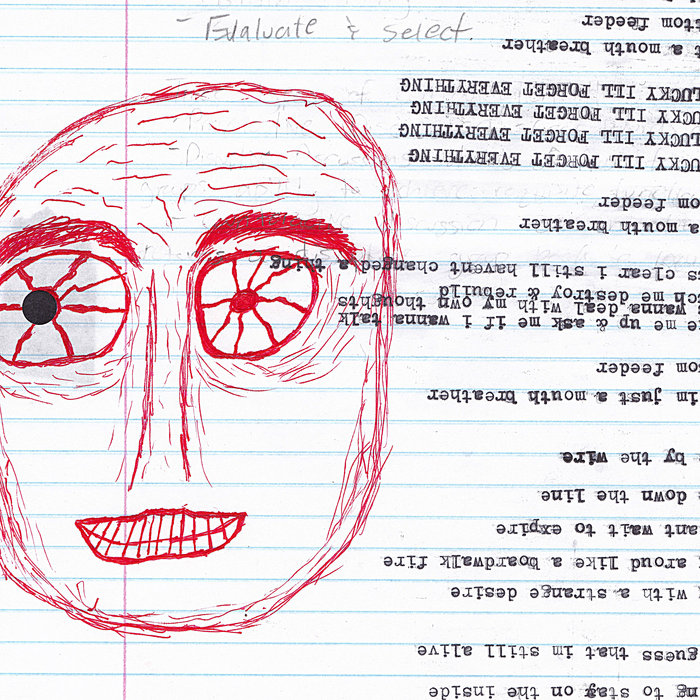 - Evaluate & select.
to stay on the inside
guess that im still alive
with a strange desire
aroud like a boardwalk fire
ant wait to expire
down the line
by the wire
im just a mouth breather
om feeder
me up & ask me if i wanna talk
wanna deal with my own thoughts
ch me destroy & rebuild
s clear i still havent changed a thing
a mouth breather
om feeder
UCKY ILL FORGET EVERYTHING
LUCKY ILL FORGET EVERYTHING
UCKY ILL FORGET EVERYTHING
LUCKY ILL FORGET EVERYTHING
t a mouth breather
tom feeder